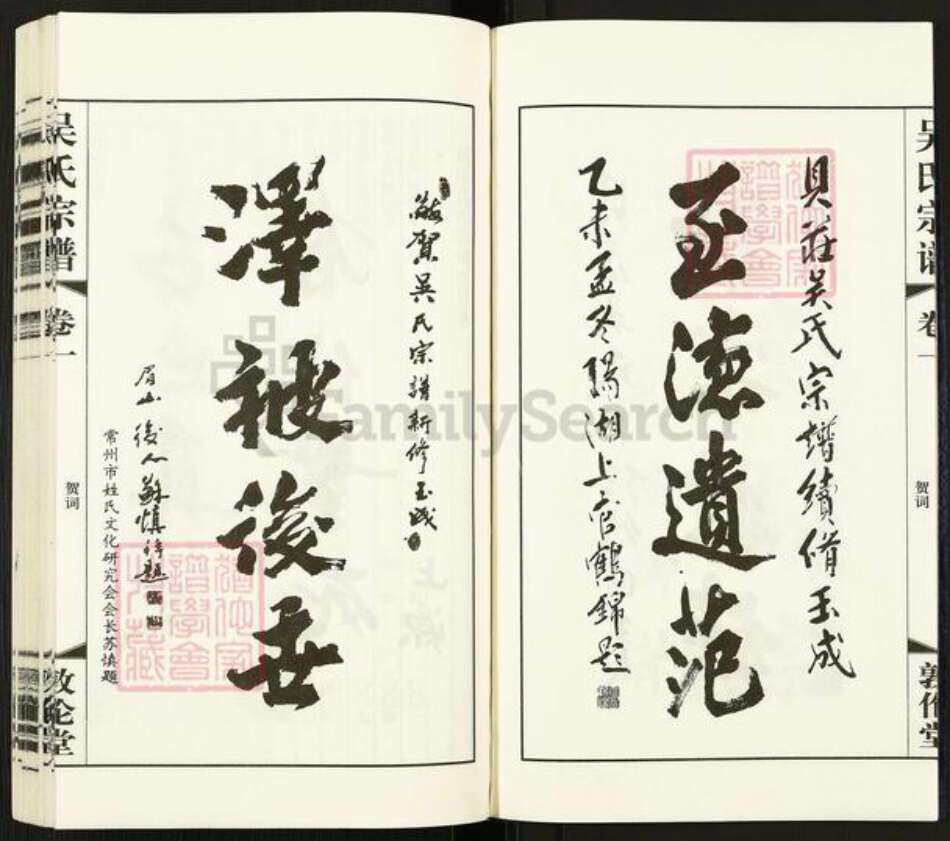 吴氏宗谱 卷一 贺词 敦伦堂
貝莊吴氏宗譜續修玉成
至德遺范
乙未孟冬陽湖上官鶴錦題
敬賀吴氏宗譜新修玉成
澤被後世
眉山後人蘇慎
常州市姓氏文化研究会会长苏慎题
吴氏宗谱 卷一 贺词 敦伦堂
FamilySearch